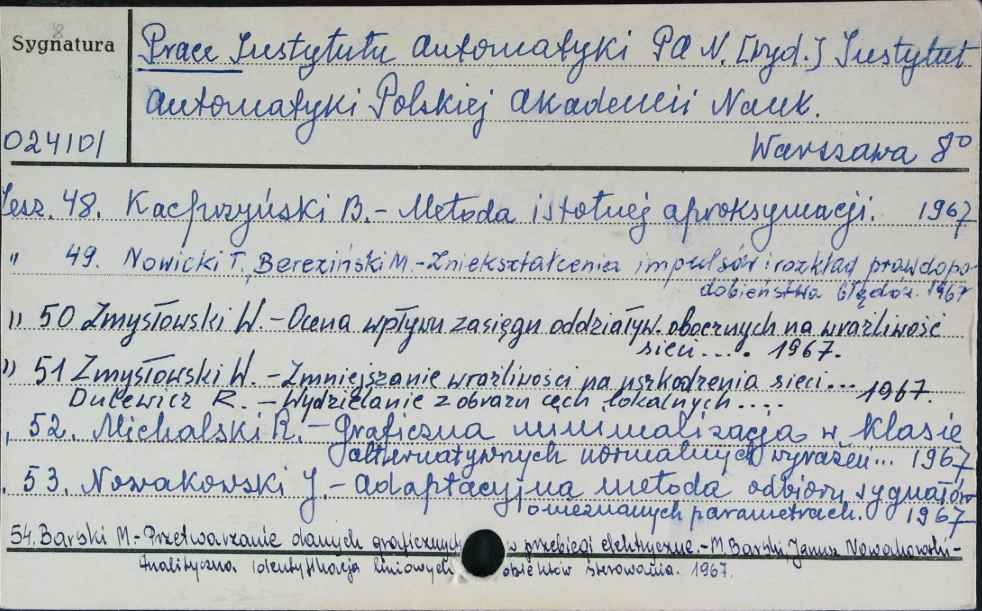 8
Sygnatura
Prace Instytutu Automatyki PAN. [wyd.] Instytut
Automatyki Polskiej Akademii Nauk.
024101
Warszawa 8°
Zesz. 48. Kacprzyński B. - Metoda istotnej aproksymacji. 1967
" 49. Nowicki T., Bereziński M. - Zniekształcenia impulsów i rozkład prawdopo-
dobieństwa błędów. 1967
" 50 Zmysłowski W. - Ocena wpływu zasięgu oddziaływ. obocznych na wrażliwość
sieci.... 1967.
" 51 Zmysłowski W. - Zmniejszanie wrażliwości na uszkodzenia sieci... 1967.
Dulewicz R. - Wydzielanie z obrazu cech lokalnych....
" 52. Michalski R. - Graficzna minimalizacja w klasie
alternatywnych normalnych wyrażeń... 1967
" 53. Nowakowski J. - Adaptacyjna metoda odbioru sygnałów
o nieznanych parametrach. 1967
54. Barski M. - Przetwarzanie danych graficznych w przebiegi elektryczne. - M. Barski, Janusz Nowakowski -
Analityczna identyfikacja liniowych obiektów sterowania. 1967.